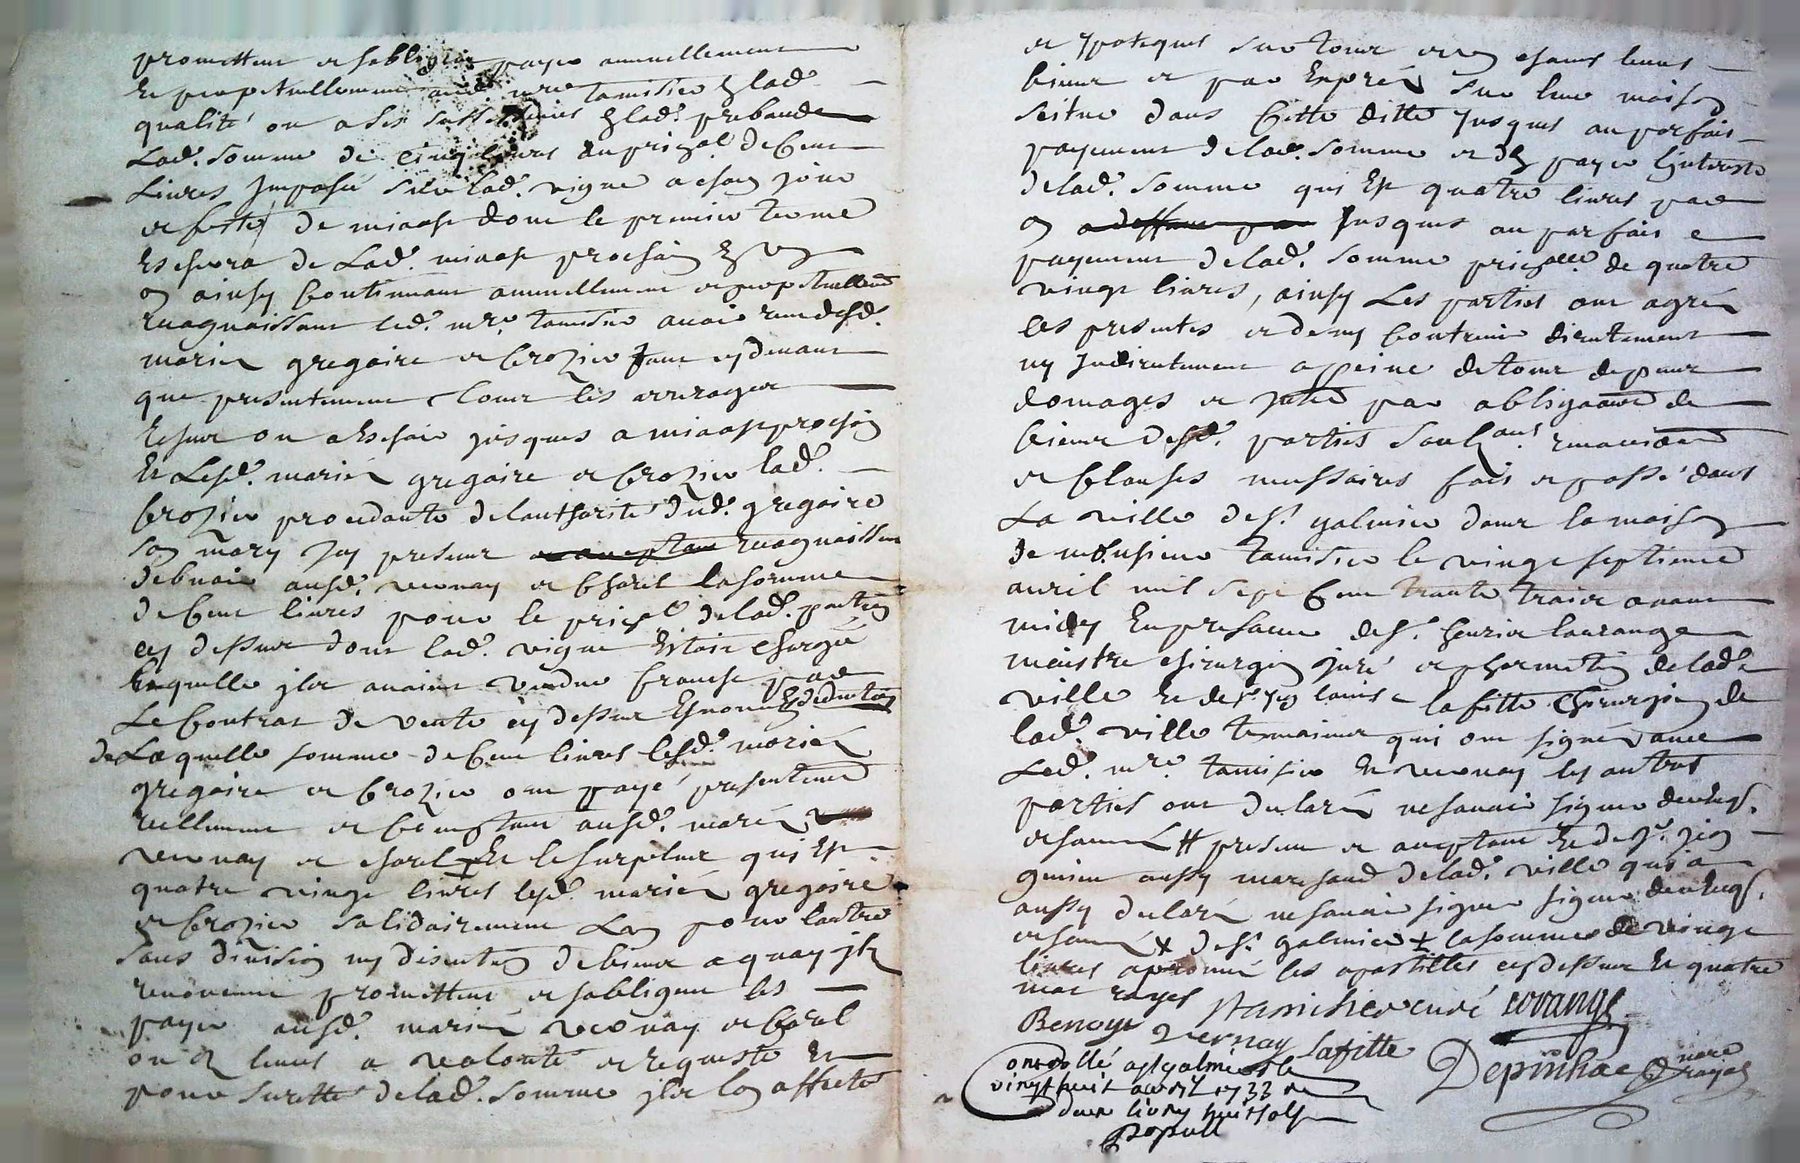 promettent et sobligent payer annuellement
Et perpetuellement aud. mre tamisier Et lad.
qualité ou a ses successeurs Et lad. prebande
Lad. somme de cinq livres au prizal de Cent
Livres Imposé sur lad. vigne a chaq jour
et feste de miaost dont le premier terme
Eschera de Lad. miaost prochain
Et ainsy Continuant annuellement et perpetuellemt
recognoissant led. mre tamisier avoir receu desd.
mariez gregoire et Crozier tant cy devant
que presentement tous les arrerages
Escheus ou a Eschoir jusques a miaost prochain
Et Lesd. mariez gregoire et Crozier lad.
Crozier procedante de lauthorité dud. gregoire
son mary Icy present recognoissent
debvoir ausd. vernay et Charel la somme
de Cent livres pour le prizal de lad. pention
cy dessus dont lad. vigne Estoit chargée
laquelle ils avoient vendue franche par
Le Contrat de vente cy dessus Esnoncé deduction
de Laquelle somme de Cent livres lesd. mariez
gregoire et Crozier ont payé presentement
reellement et Comptant ausd. mariez
vernay et charel Et le surplus qui Est
quatre vingt livres lesd. mariez gregoire
et Crozier solidairement Lun pour lautre
sans division ny discution de biens a quoy ils
renoncent promettent et sobligent les
payer ausd. mariez vernay et Charel
ou Et leurs a volonté et requeste Et
pour suretté de lad. somme ils lon affecté
et ypotequés sur tous et un chacuns leurs
biens et par Exprés sur leur maison
scitue dans Cette ditte jusques au parfait
payement de lad. somme et de payer linterest
de lad. somme qui Est quatre livres par
an jusques au parfait
payement de lad. somme prizalle de quatre
vingt livres, ainsy Les parties ont agréé
les presentes et de ny Contrevenir directement
ny Indirectement a peine de tous depens
domages et par obligaon de
biens desd. parties renonciaon
et Clauses necessaires fait et passé dans
La ville de St galmier dans la maison
de monsieur tamisier le vingt septieme
avril mil sept Cent trante trois avant
midy En presance de sr laurange
maistre chirurgien juré et de lad.
ville Et de sr louis lafitte Chirurgien de
lad. ville temoins qui ont signé avec
Led. mre tamisier Et vernay les autres
parties ont declaré ne savoir signer de
present et aceptant Et de sr
aussy marchand de lad. ville qui a
aussy declaré ne savoir signer
de St galmier la somme de vingt
livres aprouvé les apostilles cy dessus Et quatre
mot rayes Tamisier curé lorange
Benoyt Vernay Lafitte
Depinhac nore royal
Controllé a St galmier le
vingt huit avril 1733 re
deux livres huit sols